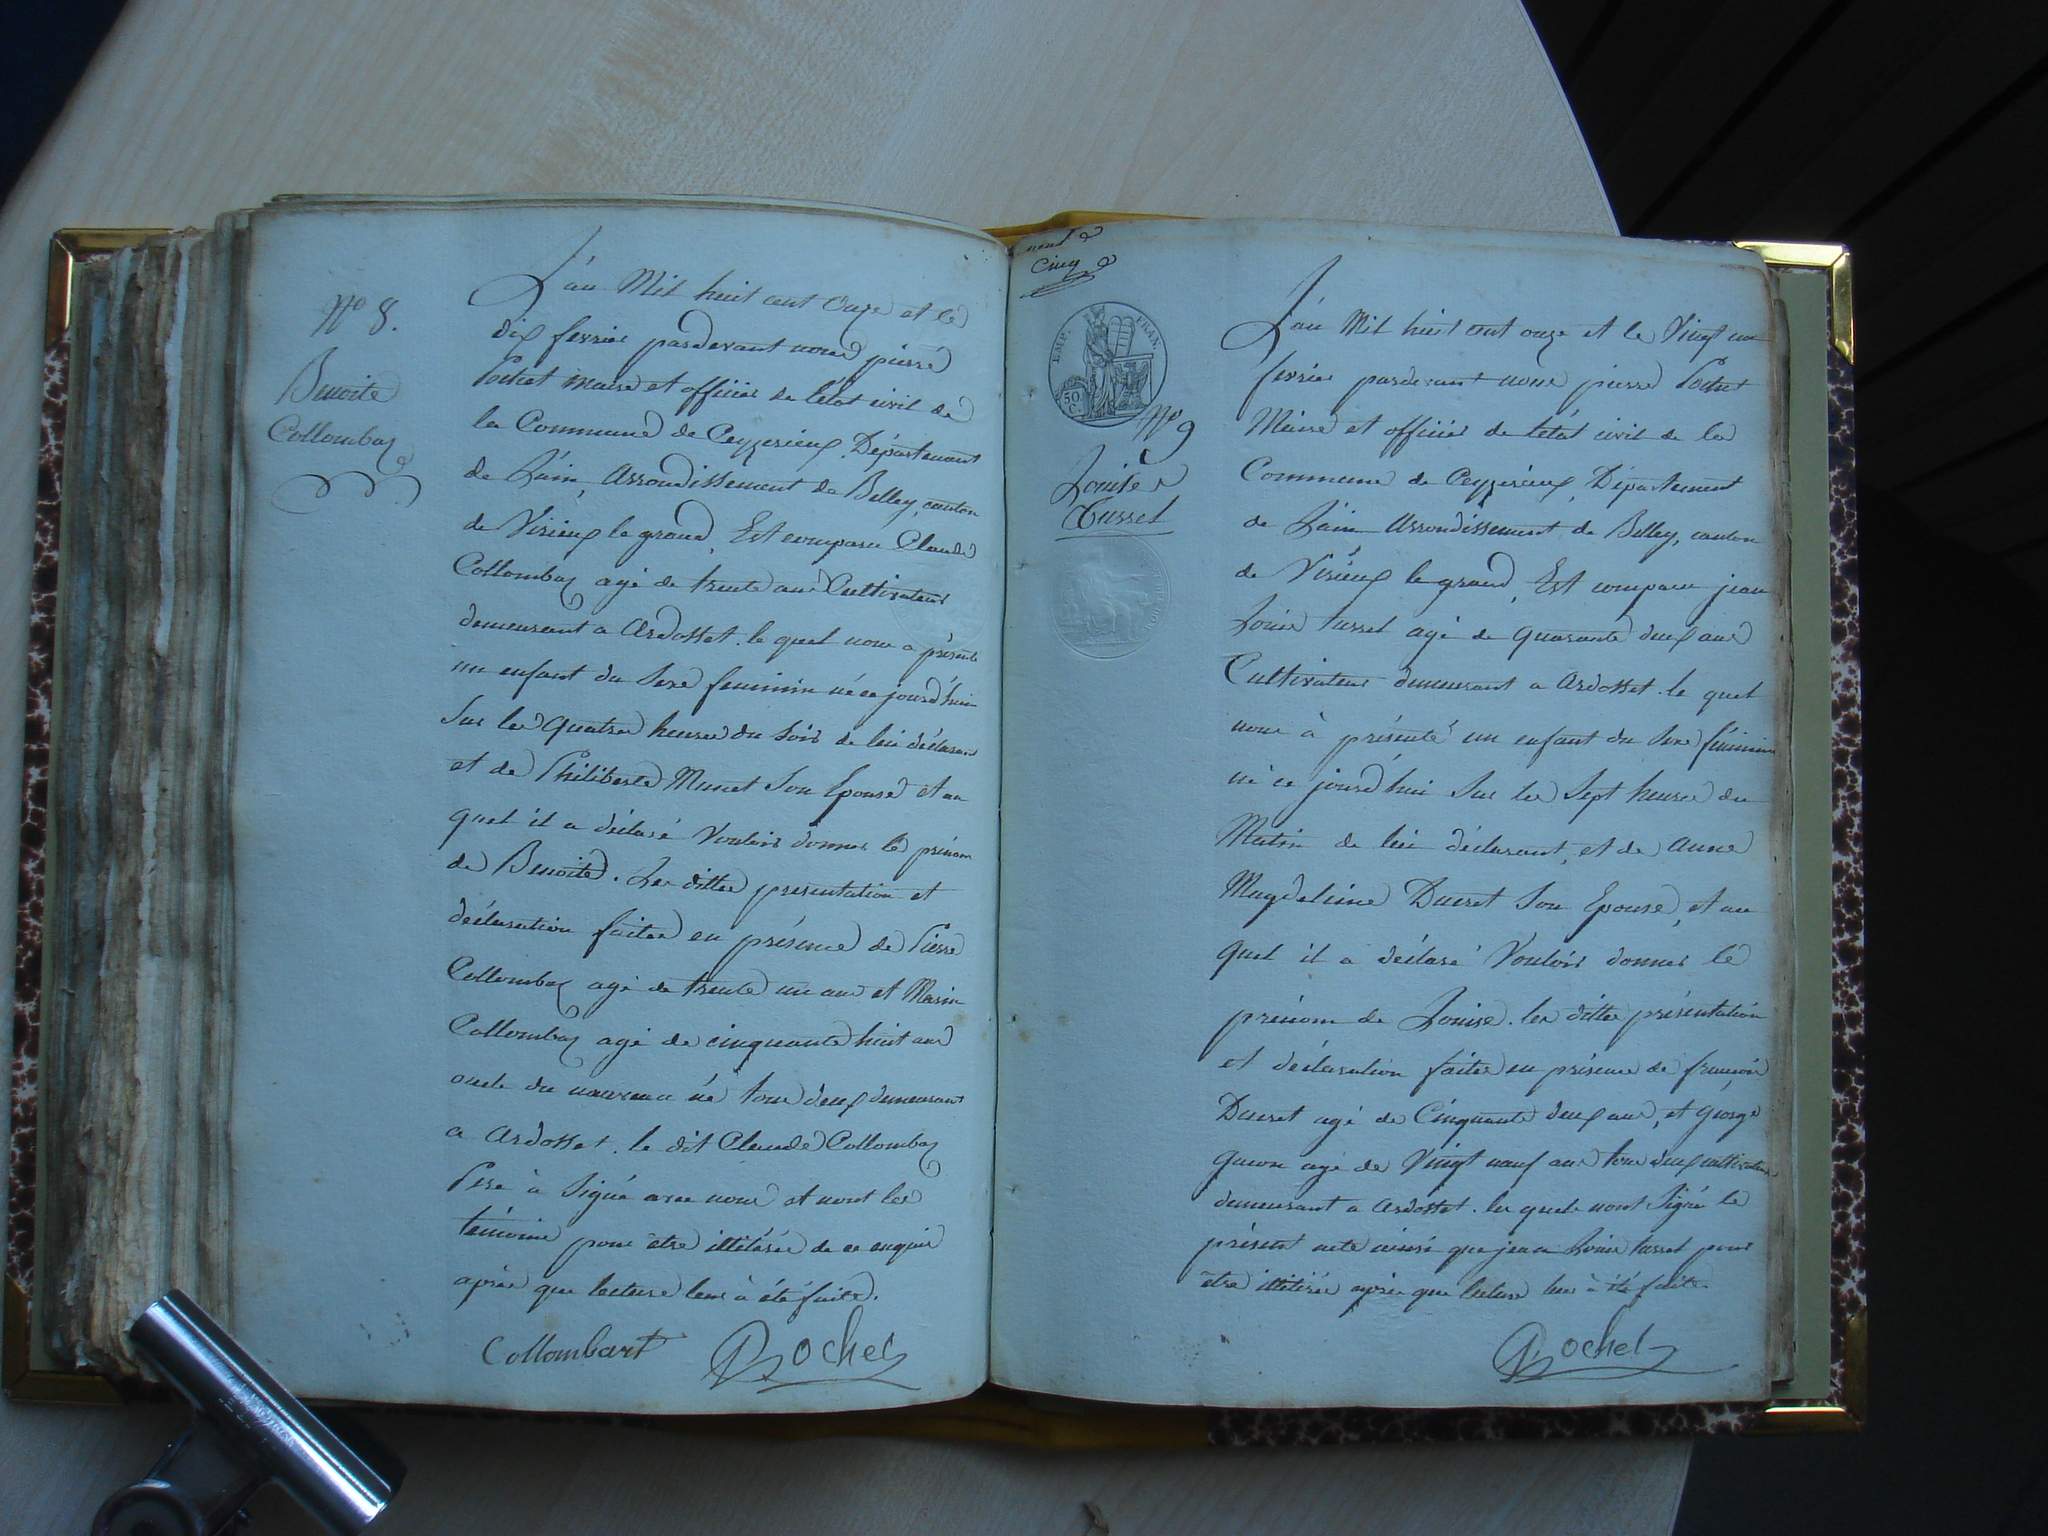 N.o 8.
Benoite
Collombaz
L'an Mil huit cent Onze et le
dix fevrier pardevant nous pierre
Pochet maire et officier de l'etat civil de
la Commune de Ceyzerieux, Département
de L'ain, Arrondissement de Belley, canton
de Virieux le grand, Est comparu Claude
Collombaz agé de trente ans Cultivateur
demeurant a Ardosset. le quel nous a présenté
un enfant du Sexe feminin né ce jourd'hui
Sur les quatre heures du Soir de lui déclarant
et de Philiberte Munet Son Epouse et au
quel il a déclaré Vouloir donner le prénom
de Benoite. Les dittes presentation et
déclaration faites en présence de Pierre
Collombaz agé de trente un ans et Marin
Collombaz agé de cinquante huit ans
oncle du nouveau né tous deux demeurant
a Ardosset. le dit Claude Collombaz
Pere à Signé avec nous et nont les
témoins pour être illitérés de ce enquis
après que lecture leur à été faite.
Collombart Pochet
neuf
Cinq
EMP. FRAN.
50.
C.
N.o 9
Louise
Tusset
L'an Mil huit cent onze et le Vingt un
fevrier pardevant nous pierre Pochet
Maire et officier de l'état civil de la
Commune de Ceyzerieux, Département
de L'ain Arrondissement de Belley, canton
de Virieux le grand, Est comparu jean
Louis tusset agé de quarante deux ans
Cultivateur demeurant a Ardosset. le quel
nous à présenté un enfant du Sexe féminin
né ce jourd'hui Sur les Sept heures du
Matin de lui déclarant, et de anne
Magdeleine Ducret Son Epouse, et au
quel il a déclaré Vouloir donner le
prénom de Louise. les dittes présentation
et déclaration faites en présence de françois
Ducret agé de Cinquante deux ans, et george
agé de Vingt neuf ans tous deux cultivateurs
demeurant a Ardosset. les quels nont Signé le
présent acte ainsi que jean Louis tusset pour
être illitérés après que lecture leur à été faite.
Pochet